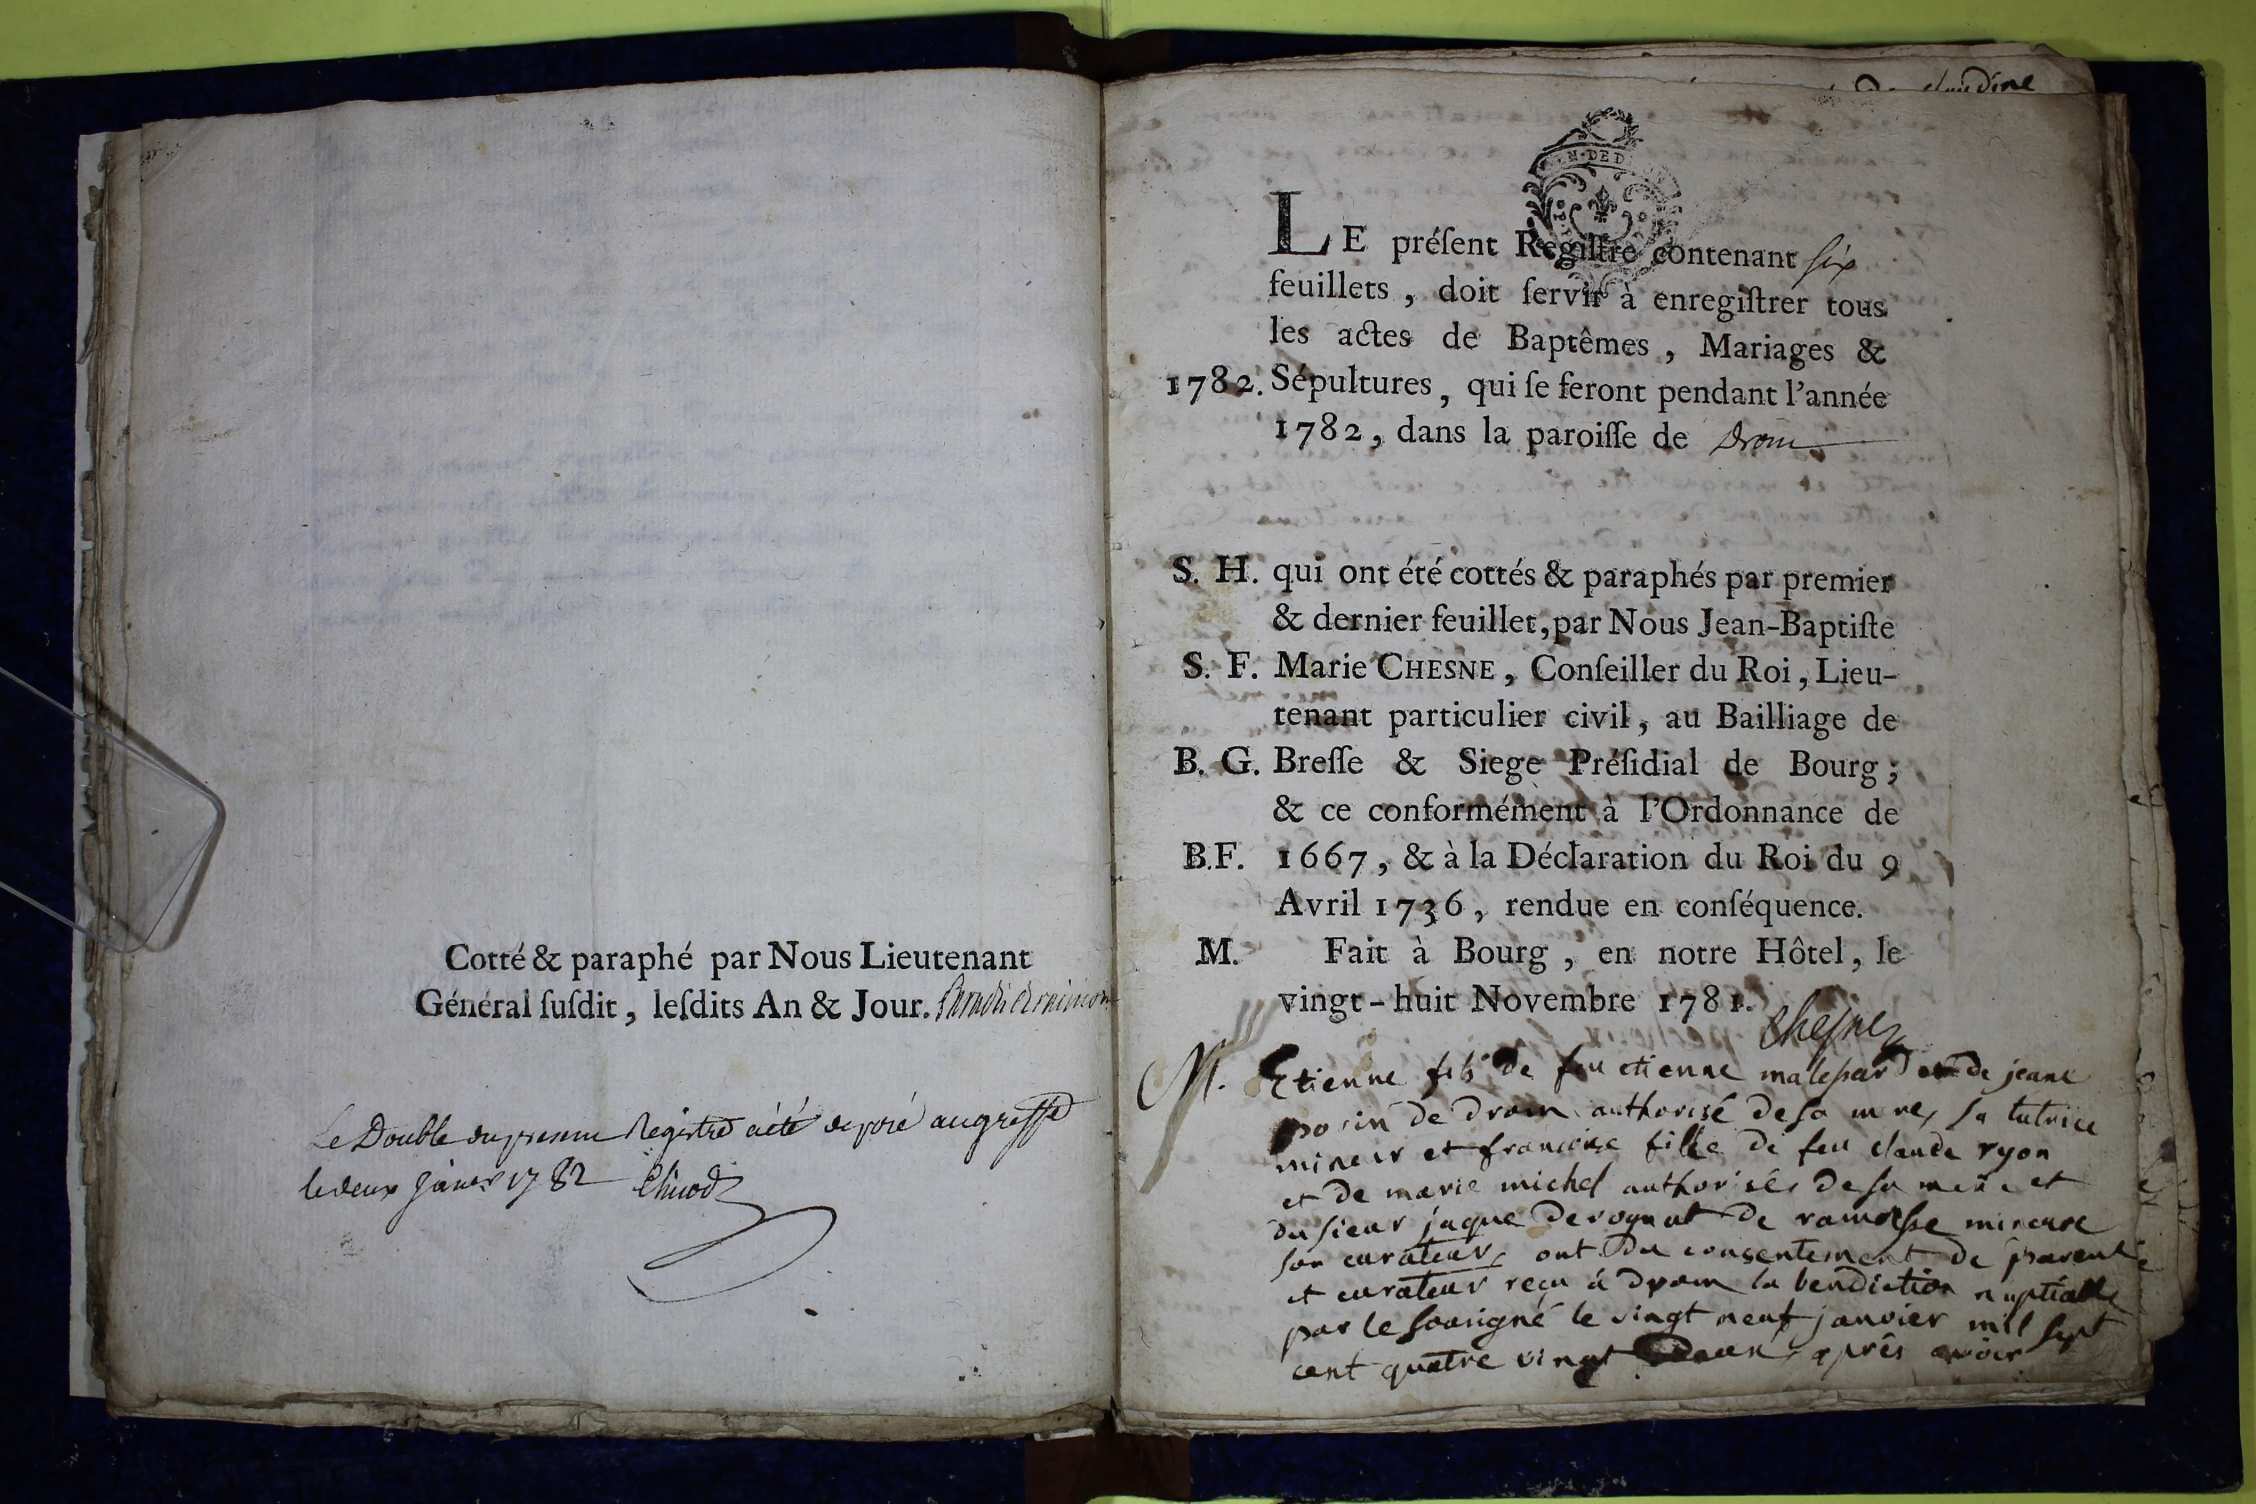 Cotté & paraphé par Nous Lieutenant
Général ſuſdit, leſdits An & Jour.
Le Double du present Registre a été deposé au greffe
le deux janvier 1782
claudine
LE préſent Regiſtre contenant six
feuillets, doit ſervir à enregiſtrer tous
les actes de Baptêmes, Mariages &
1782. Sépultures, qui ſe feront pendant l'année
1782, dans la paroiſſe de Drom
S. H. qui ont été cottés & paraphés par premier
& dernier feuillet, par Nous Jean-Baptiſte
S. F. Marie CHESNE, Conſeiller du Roi, Lieu-
tenant particulier civil, au Bailliage de
B. G. Breſſe & Siege Préſidial de Bourg;
& ce conformément à l'Ordonnance de
B. F. 1667, & à la Déclaration du Roi du 9
Avril 1736, rendue en conſéquence.
M. Fait à Bourg, en notre Hôtel, le
vingt-huit Novembre 1781.
Chesne
M. Etienne fils de feu etienne malepard et de jeane
posin de drom authorisé de sa mere, sa tutrice
mineur et francoise fille de feu claude ryon
et de marie michel authorisée de sa mere et
du sieur jaque derognat de ramasse mineure
son curateur, ont du consentement de parents
et curateur reçu á drom la benediction nuptialle
par le sousigné le vingt neuf janvier mil sept
cent quatre vingt deux, après avoir